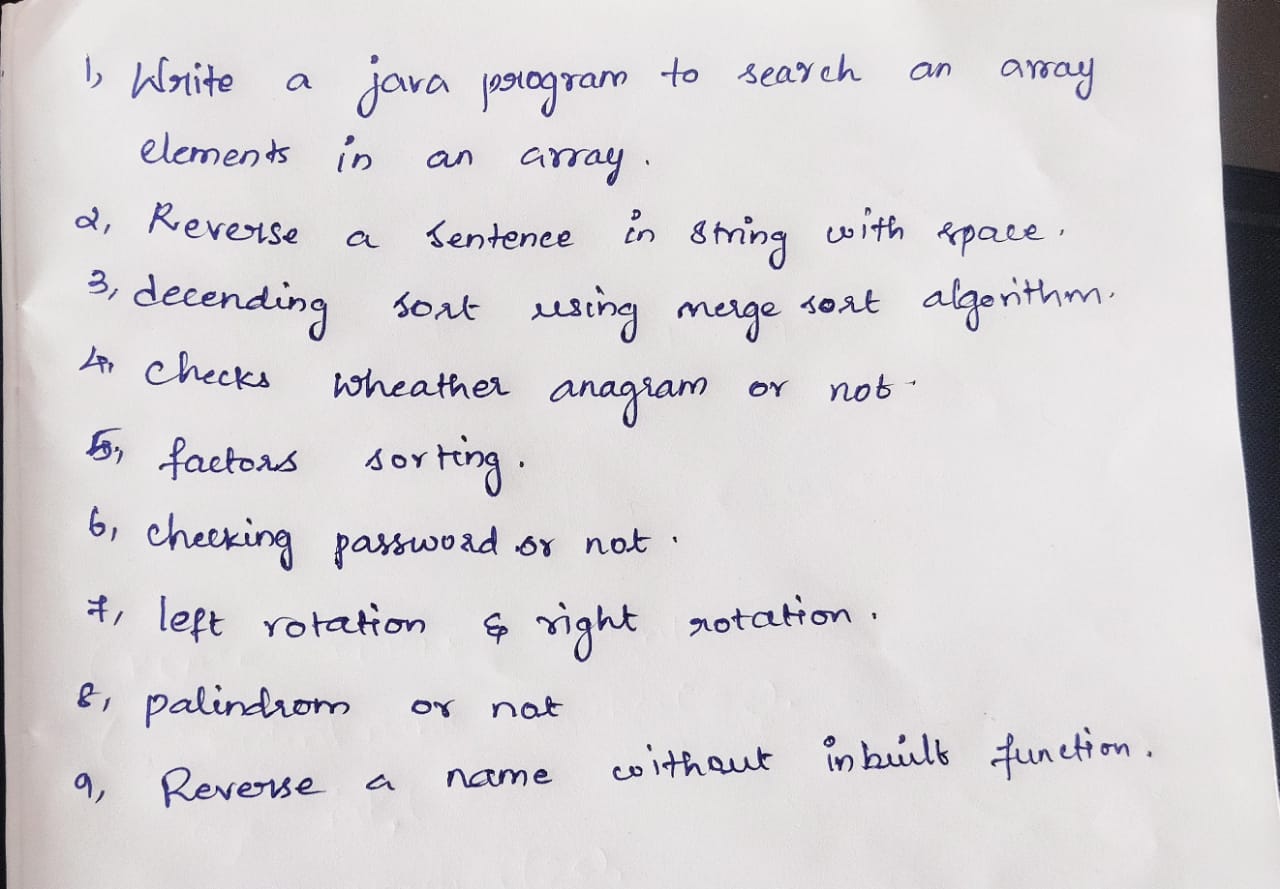 1, Write a java program to search an array
elements in an array.
2, Reverse a sentence in string with space.
3, decending sort using merge sort algorithm.
4, checks wheather anagram or not.
5, factors sorting.
6, checking password or not.
7, left rotation & right rotation.
8, palindrom or not
9, Reverse a name without inbuilt function.